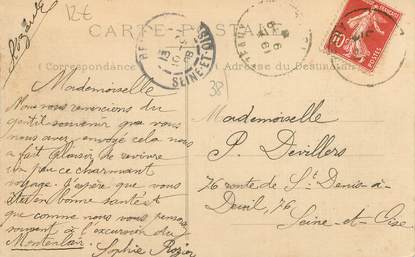 12€
CARTE POSTALE
(Correspondance
Adresse du Destinataire
SEINE-ET-OISE
Mademoiselle
Nous vous remercions du
gentil souvenir que vous
nous avez envoyé cela nous
a fait plaisir de revivre
un peu ce charmant
voyage. J'espère que vous
êtes en bonne santé et
que comme nous vous pensez
souvent à l'excursion du
Montenlair. Sophie Rozier
38
Mademoiselle
P. Devillers
76 route de St Denis-à-
Deuil, 76
Seine-et-Oise